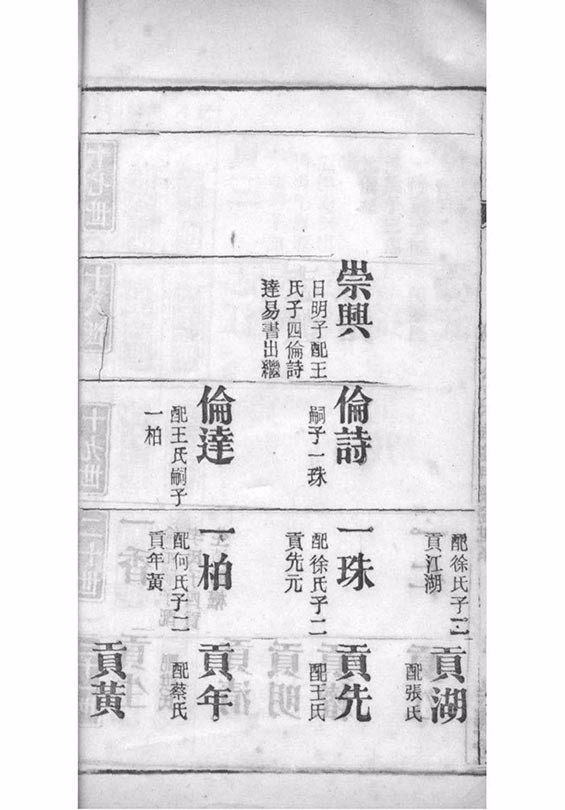 崇興
日明子配王
氏子四倫詩
達易書出繼
倫詩
嗣子一珠
倫達
配王氏嗣子
一柏
配徐氏子二
貢江湖
一珠
配徐氏子二
貢先元
一柏
配何氏子二
貢年黃
貢湖
配張氏
貢先
配王氏
貢年
配蔡氏
貢黃